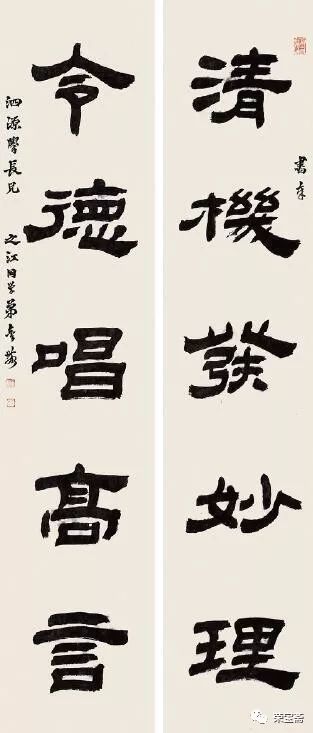 清機發妙理
書奉
令德唱高言
泗源學長兄
之江同學弟
荣宝斋